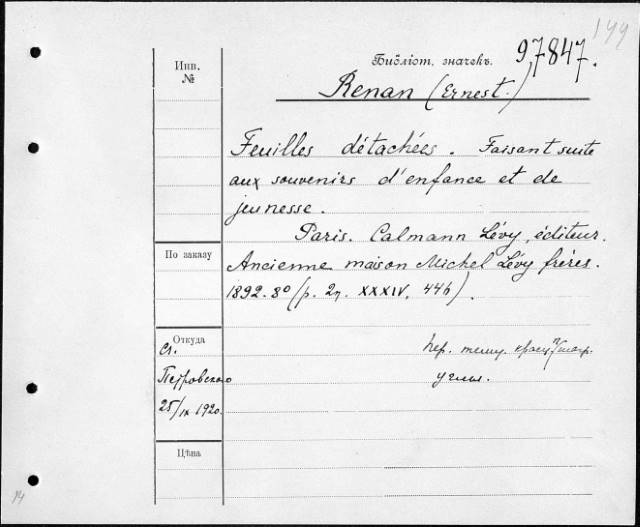 199
Инв.
№
Библіот. значекъ. 97847.
Renan (Ernest.)
Feuilles détachées. Faisant suite
aux souvenirs d'enfance et de
jeunesse.
Paris. Calmann Lévy, éditeur.
По заказу
Ancienne maison Michel Lévy frères.
1892. 8º (p. 2н. XXXIV, 446).
Откуда
Ст.
Петровского
25/IX 1920.
пер. темн.
углы.
Цѣна
14